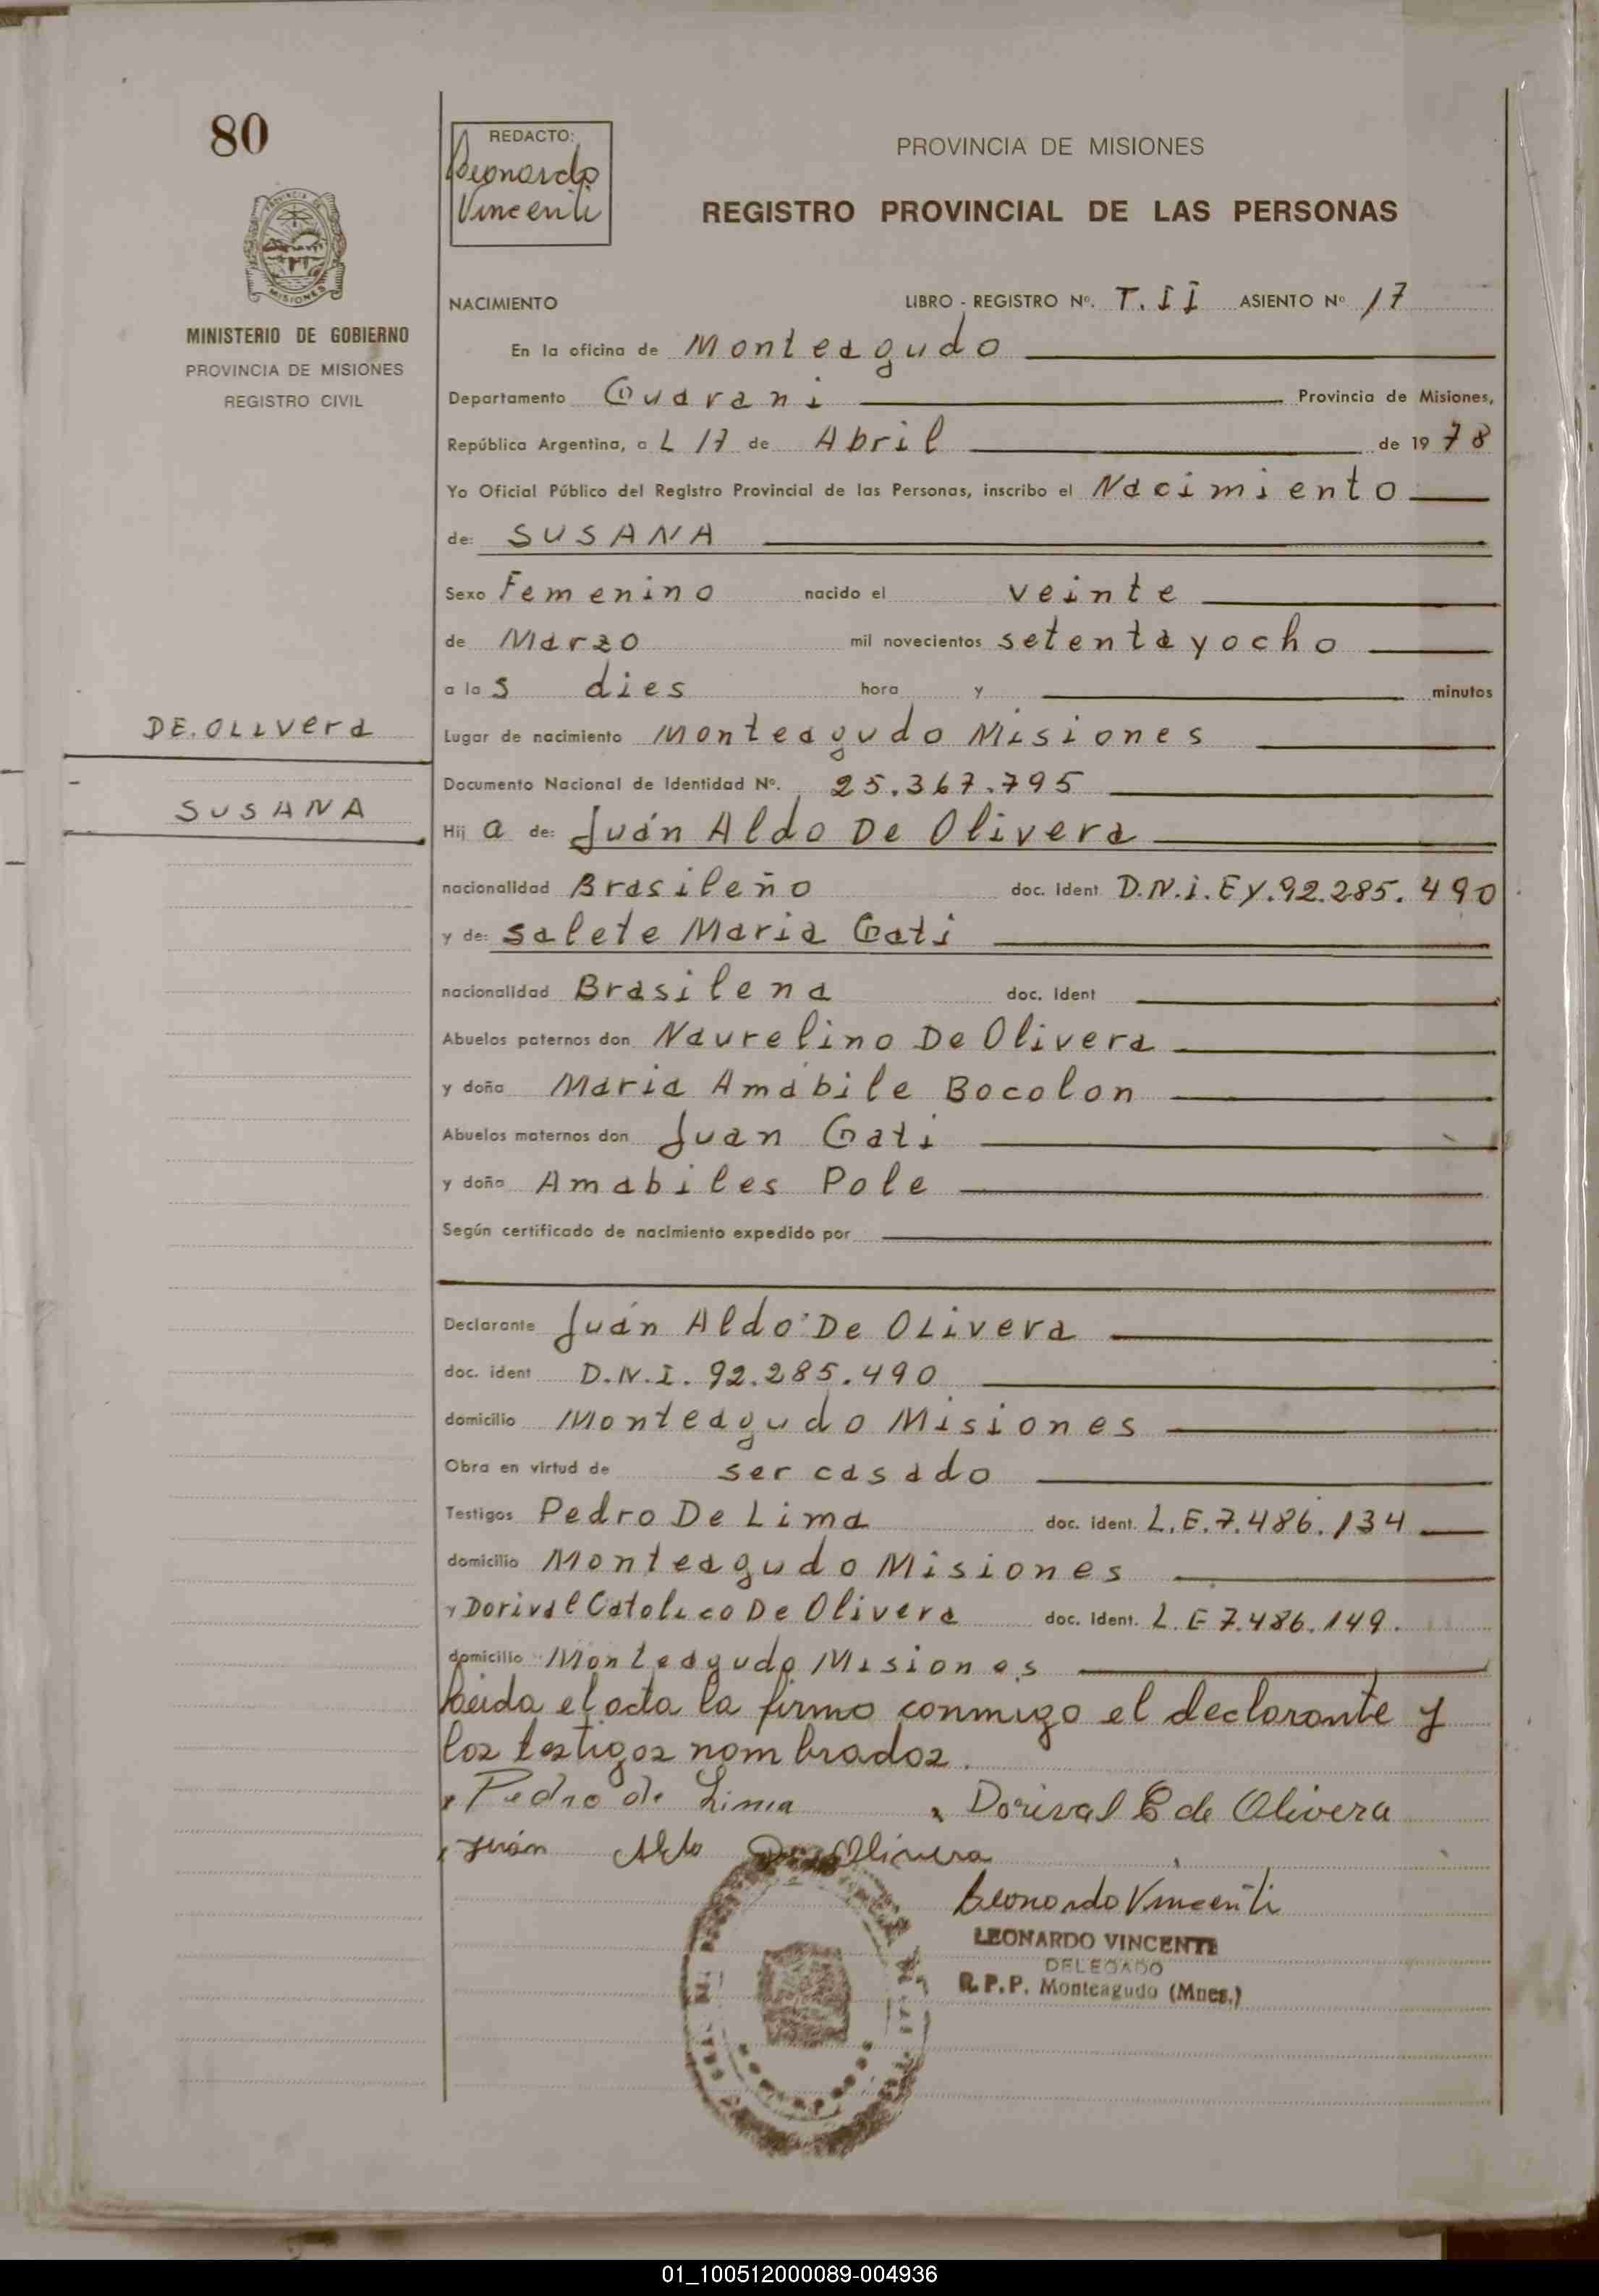 80
REDACTO:
Leonardo
Vincenti
PROVINCIA DE MISIONES
REGISTRO PROVINCIAL DE LAS PERSONAS
MISIONES
MINISTERIO DE GOBIERNO
PROVINCIA DE MISIONES
REGISTRO CIVIL
DE.OLIVera
SUSANA
NACIMIENTO LIBRO - REGISTRO Nº. T.II ASIENTO Nº 17
En la oficina de Monteagudo
Departamento Guarani Provincia de Misiones,
República Argentina, a L 17 de Abril de 1978
Yo Oficial Público del Registro Provincial de las Personas, inscribo el Nacimiento
de: SUSANA
Sexo Femenino nacido el veinte
de Marzo mil novecientos setenta y ocho
a las dies hora y minutos
Lugar de nacimiento Monteagudo Misiones
Documento Nacional de Identidad Nº. 25.367.795
Hij a de: Juán Aldo De Olivera
nacionalidad Brasileño doc. ident D.N.i.Ey.92.285.490
y de: Salete Maria Gati
nacionalidad Brasilena doc. ident
Abuelos paternos don Naurelino De Olivera
y doña Maria Amabile Bocolon
Abuelos maternos don Juan Gati
y doña Amabiles Pole
Según certificado de nacimiento expedido por
Declarante Juán Aldo De OLivera
doc. ident D.N.I. 92.285.490
domicilio Monteagudo Misiones
Obra en virtud de ser casado
Testigos Pedro De Lima doc. ident. L.E.7.486.134
domicilio Monteagudo Misiones
y Dorival Catolico De Olivera doc. ident. L.E 7.486.149.
domicilio Monteagudo Misiones
Leida el acta la firmo conmigo el declarante y
los testigos nombrados.
Pedro de Lima Dorival C de Olivera
Juán Aldo De Olivera
Leonardo Vincenti
LEONARDO VINCENTI
DELEGADO
R.P.P. Monteagudo (Mnes.)
01_100512000089-004936